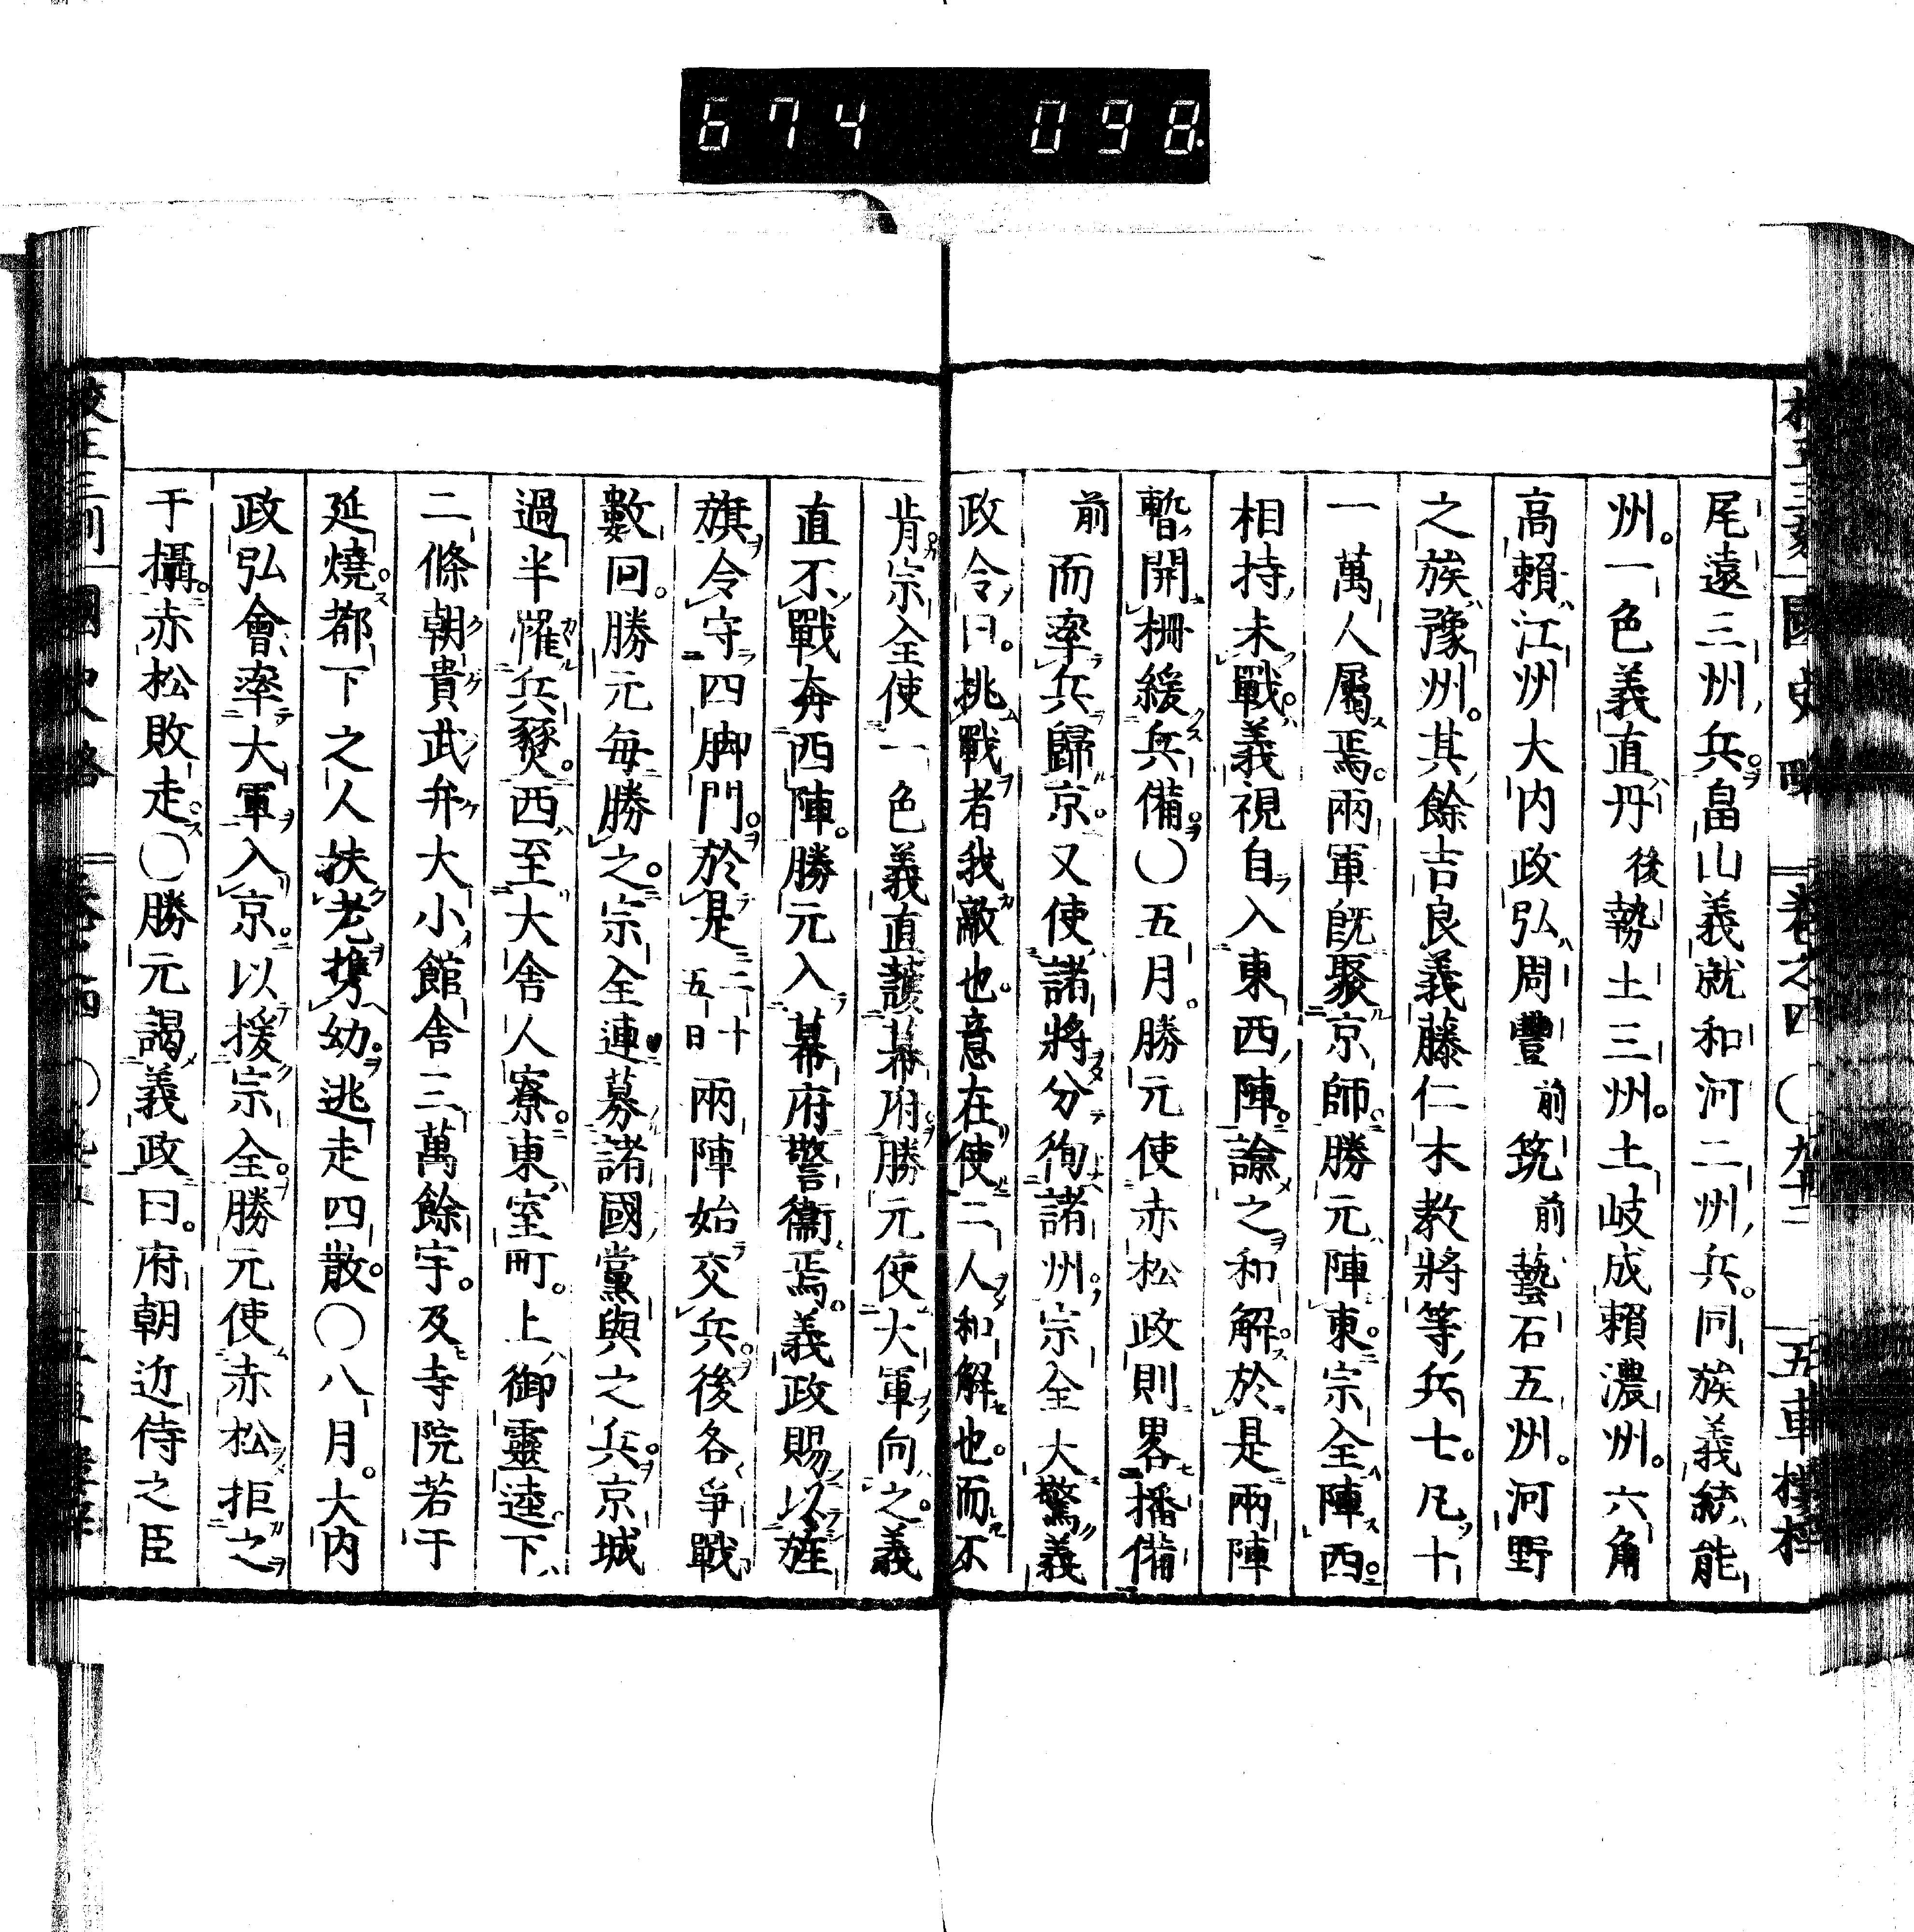 674 098
國史略 卷之四 ○九十二 五車樓梓
尾遠三州兵。畠山義就和河二州兵。同族義統能
州。一色義直丹後勢土三州。土岐成賴濃州。六角
高賴江州大内政弘周豐前筑前藝石五州。河野
之族豫州。其餘吉良義藤仁木教將等兵七。凡十
一萬人屬焉。兩軍既聚京師。勝元陣東。宗全陣西。
相持未戰。義視自入東西陣。諭之和解。於是兩陣
暫開柵緩兵備。○五月。勝元使赤松政則畧播備
前而率兵歸京。又使諸將分徇諸州。宗全大驚義
政令曰。挑戰者我敵也。意在使二人和解也。而不
肯宗全使一色義直護幕府勝元使大軍向之。義
直不戰奔西陣。勝元入幕府警衞焉。義政賜以旌
旗令守四脚門。於是二十五日兩陣始交兵。後各爭戰
數回。勝元每勝之。宗全連募諸國黨與之兵。京城
過半罹兵燹。西至大舍人寮。東室町。上御靈逵。下
二條朝貴武弁大小館舍三萬餘宇。及寺院若干
延燒。都下之人扶老携幼。逃走四散。○八月。大内
政弘會率大軍入京。以援宗全。勝元使赤松拒之
于攝。赤松敗走。○勝元謁義政曰。府朝近侍之臣